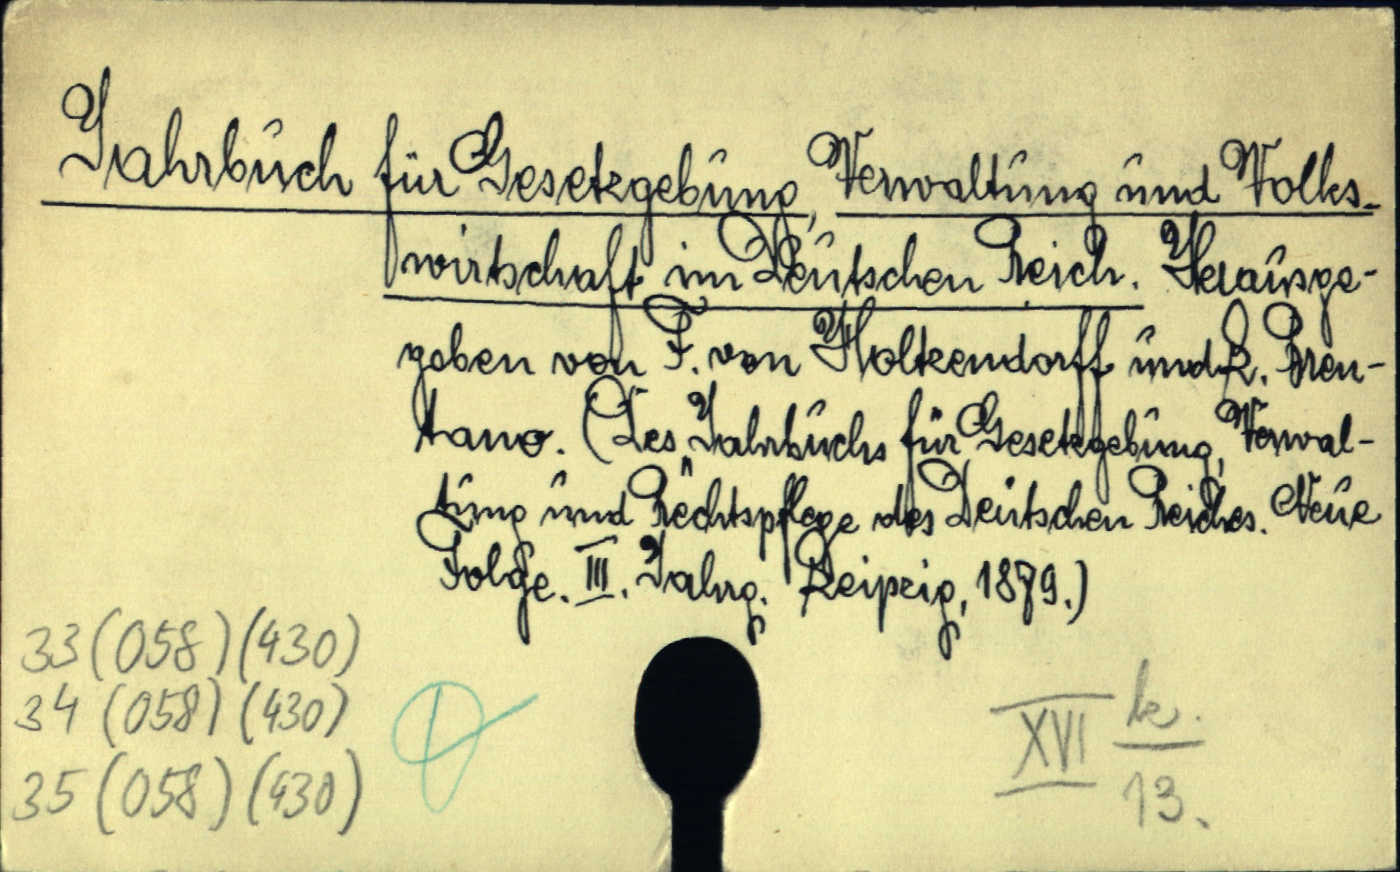 Jahrbuch für Gesetzgebung, Verwaltung und Volks-
wirtschaft im Deutschen Reich. Herausge-
geben von F. von Holtzendorff und L. Bren-
tano. (Des "Jahrbuchs für Gesetzgebung, Verwal-
tung und Rechtspflege des Deutschen Reiches. Neue
Folge. III. Jahrg. Leipzig, 1879.)
33 (058) (430)
34 (058) (430)
35 (058) (430)
XVI k. / 13.